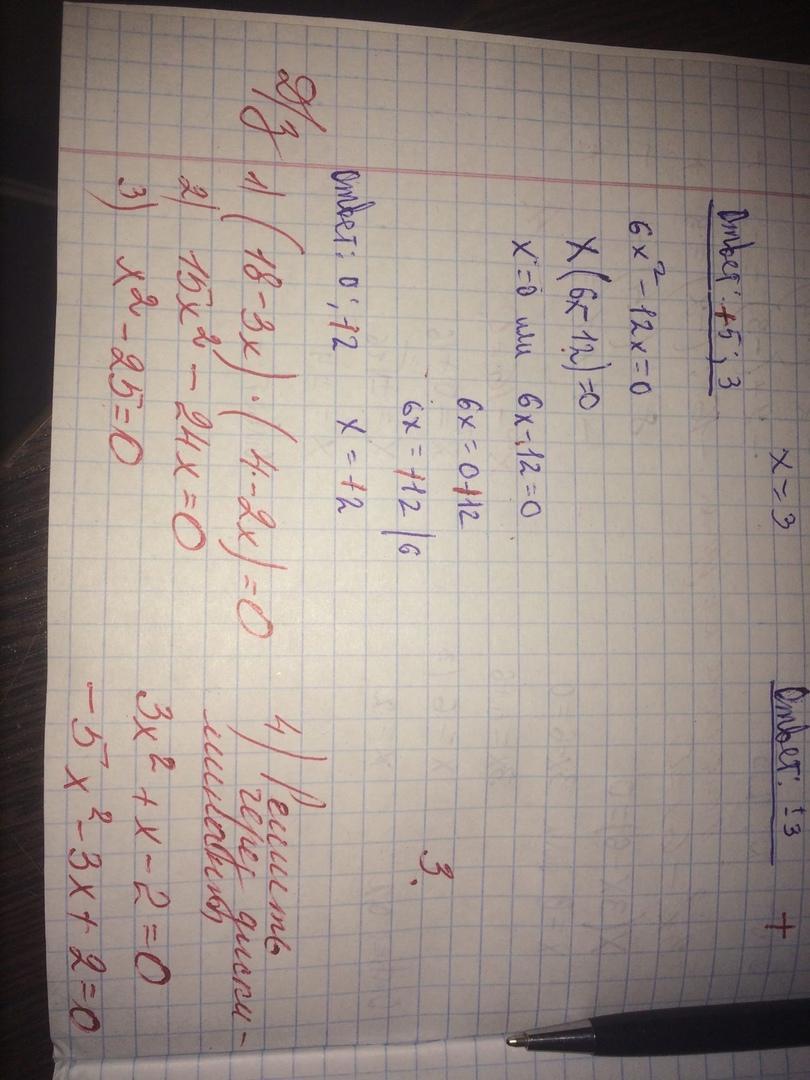 x = 3
Ответ: +5 ; 3
6x² - 12x = 0
x(6x - 12) = 0
x = 0 или 6x - 12 = 0
6x = 0 + 12
6x = +12 | 6
x = +2
Ответ: 0 ; +2
Ответ: ±3
+
3.
Д/з
1) (18 - 3x) · (4 - 2x) = 0
2) 15x² - 24x = 0
3) x² - 25 = 0
4) Решить
через диски-
минант
3x² + x - 2 = 0
-5x² - 3x + 2 = 0